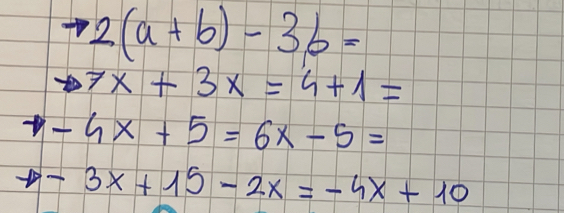 →2(a+b)-3b=
→7x+3x=4+1=
→-4x+5=6x-5=
→-3x+15-2x=-4x+10